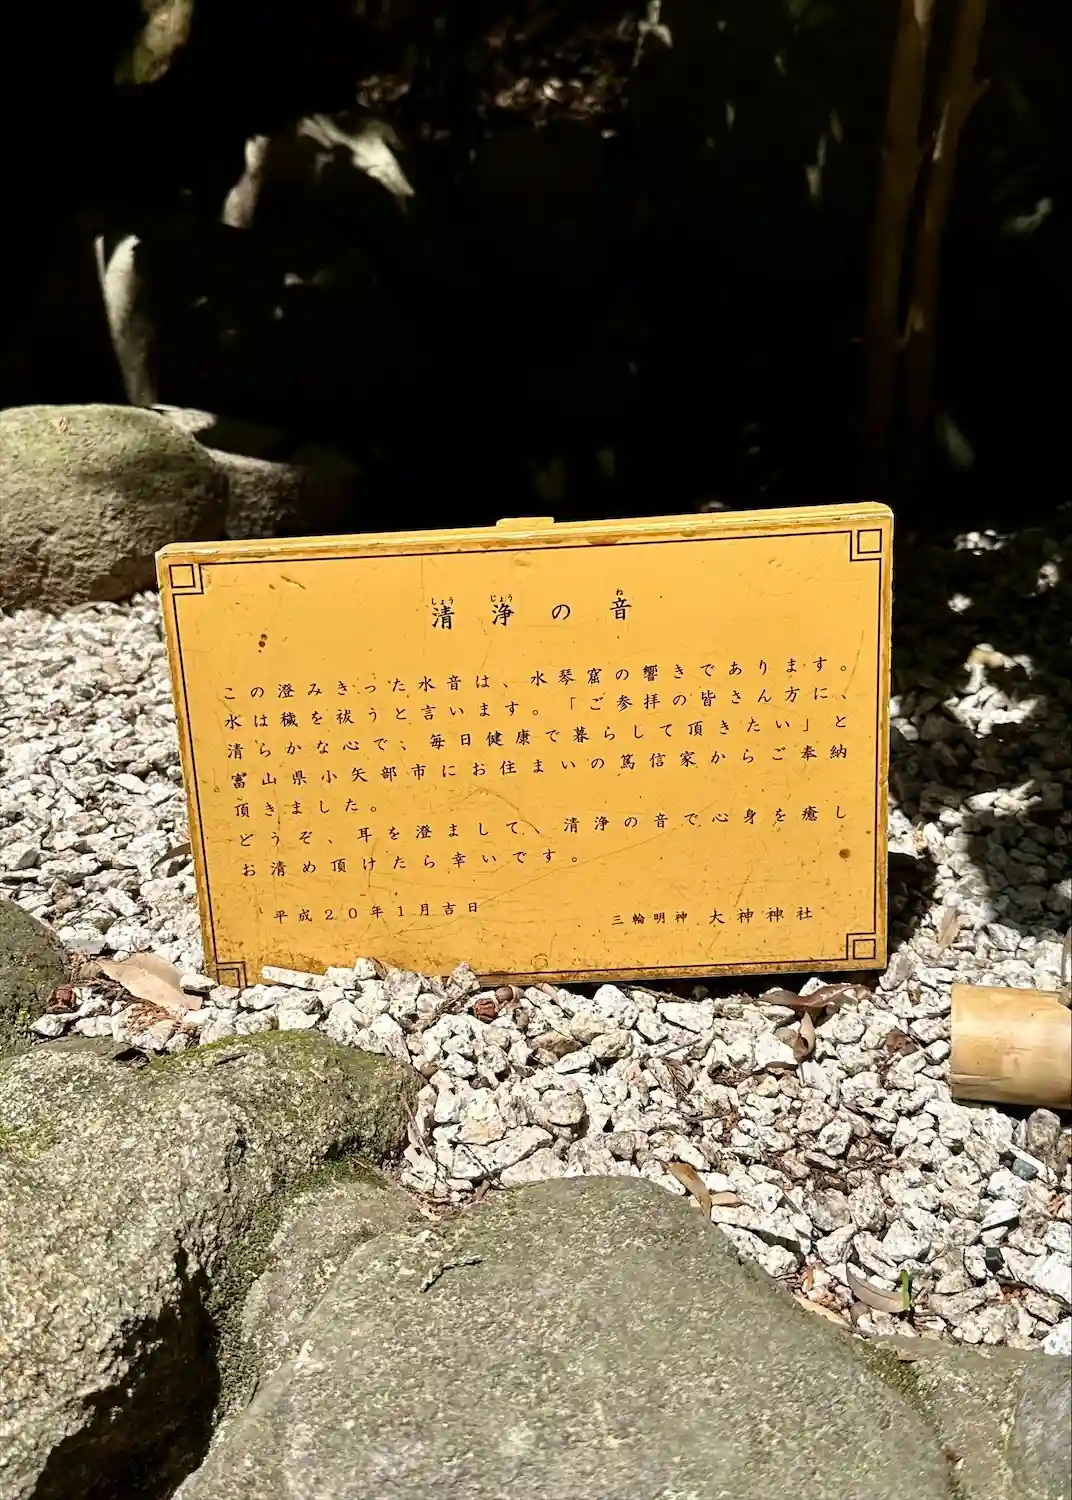 清浄の音
この澄みきった水音は、水琴窟の響きであります。
水は穢を祓うと言います。「ご参拝の皆さん方に、
清らかな心で、毎日健康で暮らして頂きたい」と
富山県小矢部市にお住まいの篤信家からご奉納
頂きました。
どうぞ、耳を澄まして、清浄の音で心身を癒し
お清め頂けたら幸いです。
平成20年1月吉日
三輪明神 大神神社